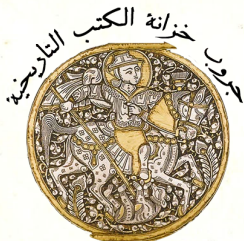 جروب خزانة الكتب التاريخية